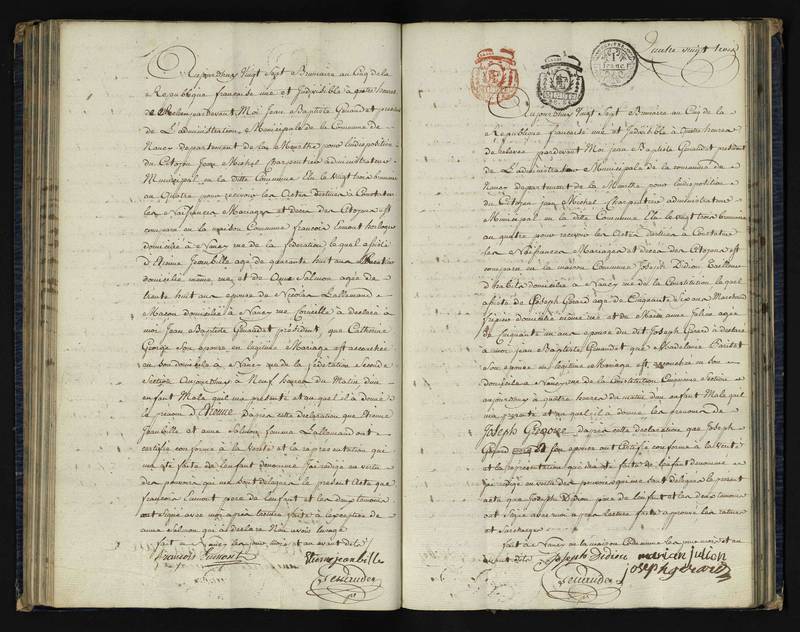 Aujourdhuy Vingt Sept Brumaire an Cinq de la
République francaise une et Indivisible à quatre heures
de Relevée pardevant Moi Jean Baptiste président
de L'administration Municipale de la Commune de
Nancy departement de la Meurthe pour l'indisposition
du Citoyen Jean Michel Charpentier administrateur
Municipal en la ditte Commune Elu le vingt trois brumaire
an Quatre pour recevoir les Actes destinés à Constater
les Naissances Mariages et décès des Citoyens est
comparu en la maison Commune françois horloger
domicilié à Nancy rue de la federation lequel assisté
d'Etienne Jeanbille age de quarante huit ans
domicilié même rue et de Anne Salmon agée de
trente huit ans epouse de Nicolas Lallemand
Macon domiciliée à Nancy rue à déclaré à
moi Jean Baptiste président, que Catherine
George Son epouse en legitime Mariage est accouchée
en son domicile à Nancy rue de la féderation Seconde
Section Aujourdhuy à Neuf heures du Matin d'un
enfant Male qui ma presenté et auquel il a donné
le prenom d'Etienne D'après cette declaration que Etienne
Jeanbille et anne Salmon femme Lallemand ont
certifié conforme à la Verité et la representation qui
ma été faite de l'enfant denommé J'ai redigé en vertu
des pouvoirs qui me sont delegués le présent Acte que
françois pere de l'enfant et les deux temoins
ont Signé avec moi après lecture faite à l'exception de
anne Salmon qui a declaré Ne
fait à Nancy les jour mois et an avant dits
françois
Etienne jeanbille
quatre vingt trois
1
franc
Aujourdhuy Vingt Sept Brumaire an Cinq de la
République francaise une et Indivisible à quatre heures
de relevée pardevant Moi jean Baptiste président
de L'administration Municipale de la commune de
Nancy departement de la Meurthe pour l'indisposition
du Citoyen jean Michel Charpentier administrateur
Municipal en la ditte Commune Elu le vingt trois brumaire
an quatre pour recevoir les Actes destinés à Constater
les Naissances Mariages et décès des Citoyens est
comparu en la maison Commune Joseph Didion
d'habits domicilié à Nancy rue de la Constitution lequel
assisté de Joseph Gerard agé de Cinquante ans Marchand
domicilié même rue et de Marie anne agée
de Cinquante un ans epouse du dit Joseph Gerard à declaré
à moi jean Baptiste que Madelaine
Son epouse en legitime Mariage est accouchée en son
domicile à Nancy rue de la Constitution Cinquieme Section
aujourdhuy à quatre heures du matin d'un enfant Male quil
ma presenté et auquel il a donné les prenoms de
Joseph Gregoire d'après cette declaration que Joseph
Gérard et Son epouse ont Certifié conforme à la Verité
et la representation qui ma été faite de l'enfant denommé
jai redigé en vertu des pouvoirs qui me sont delegués le present
acte que Joseph Didion pere de l'enfant et les deux temoins
ont Signé avec moi après lecture faite approuvé les ratures
et Surcharge
fait à Nancy en la maison Commune les jour mois et an
avant dits
Joseph Didion
marian julion
joseph gérard